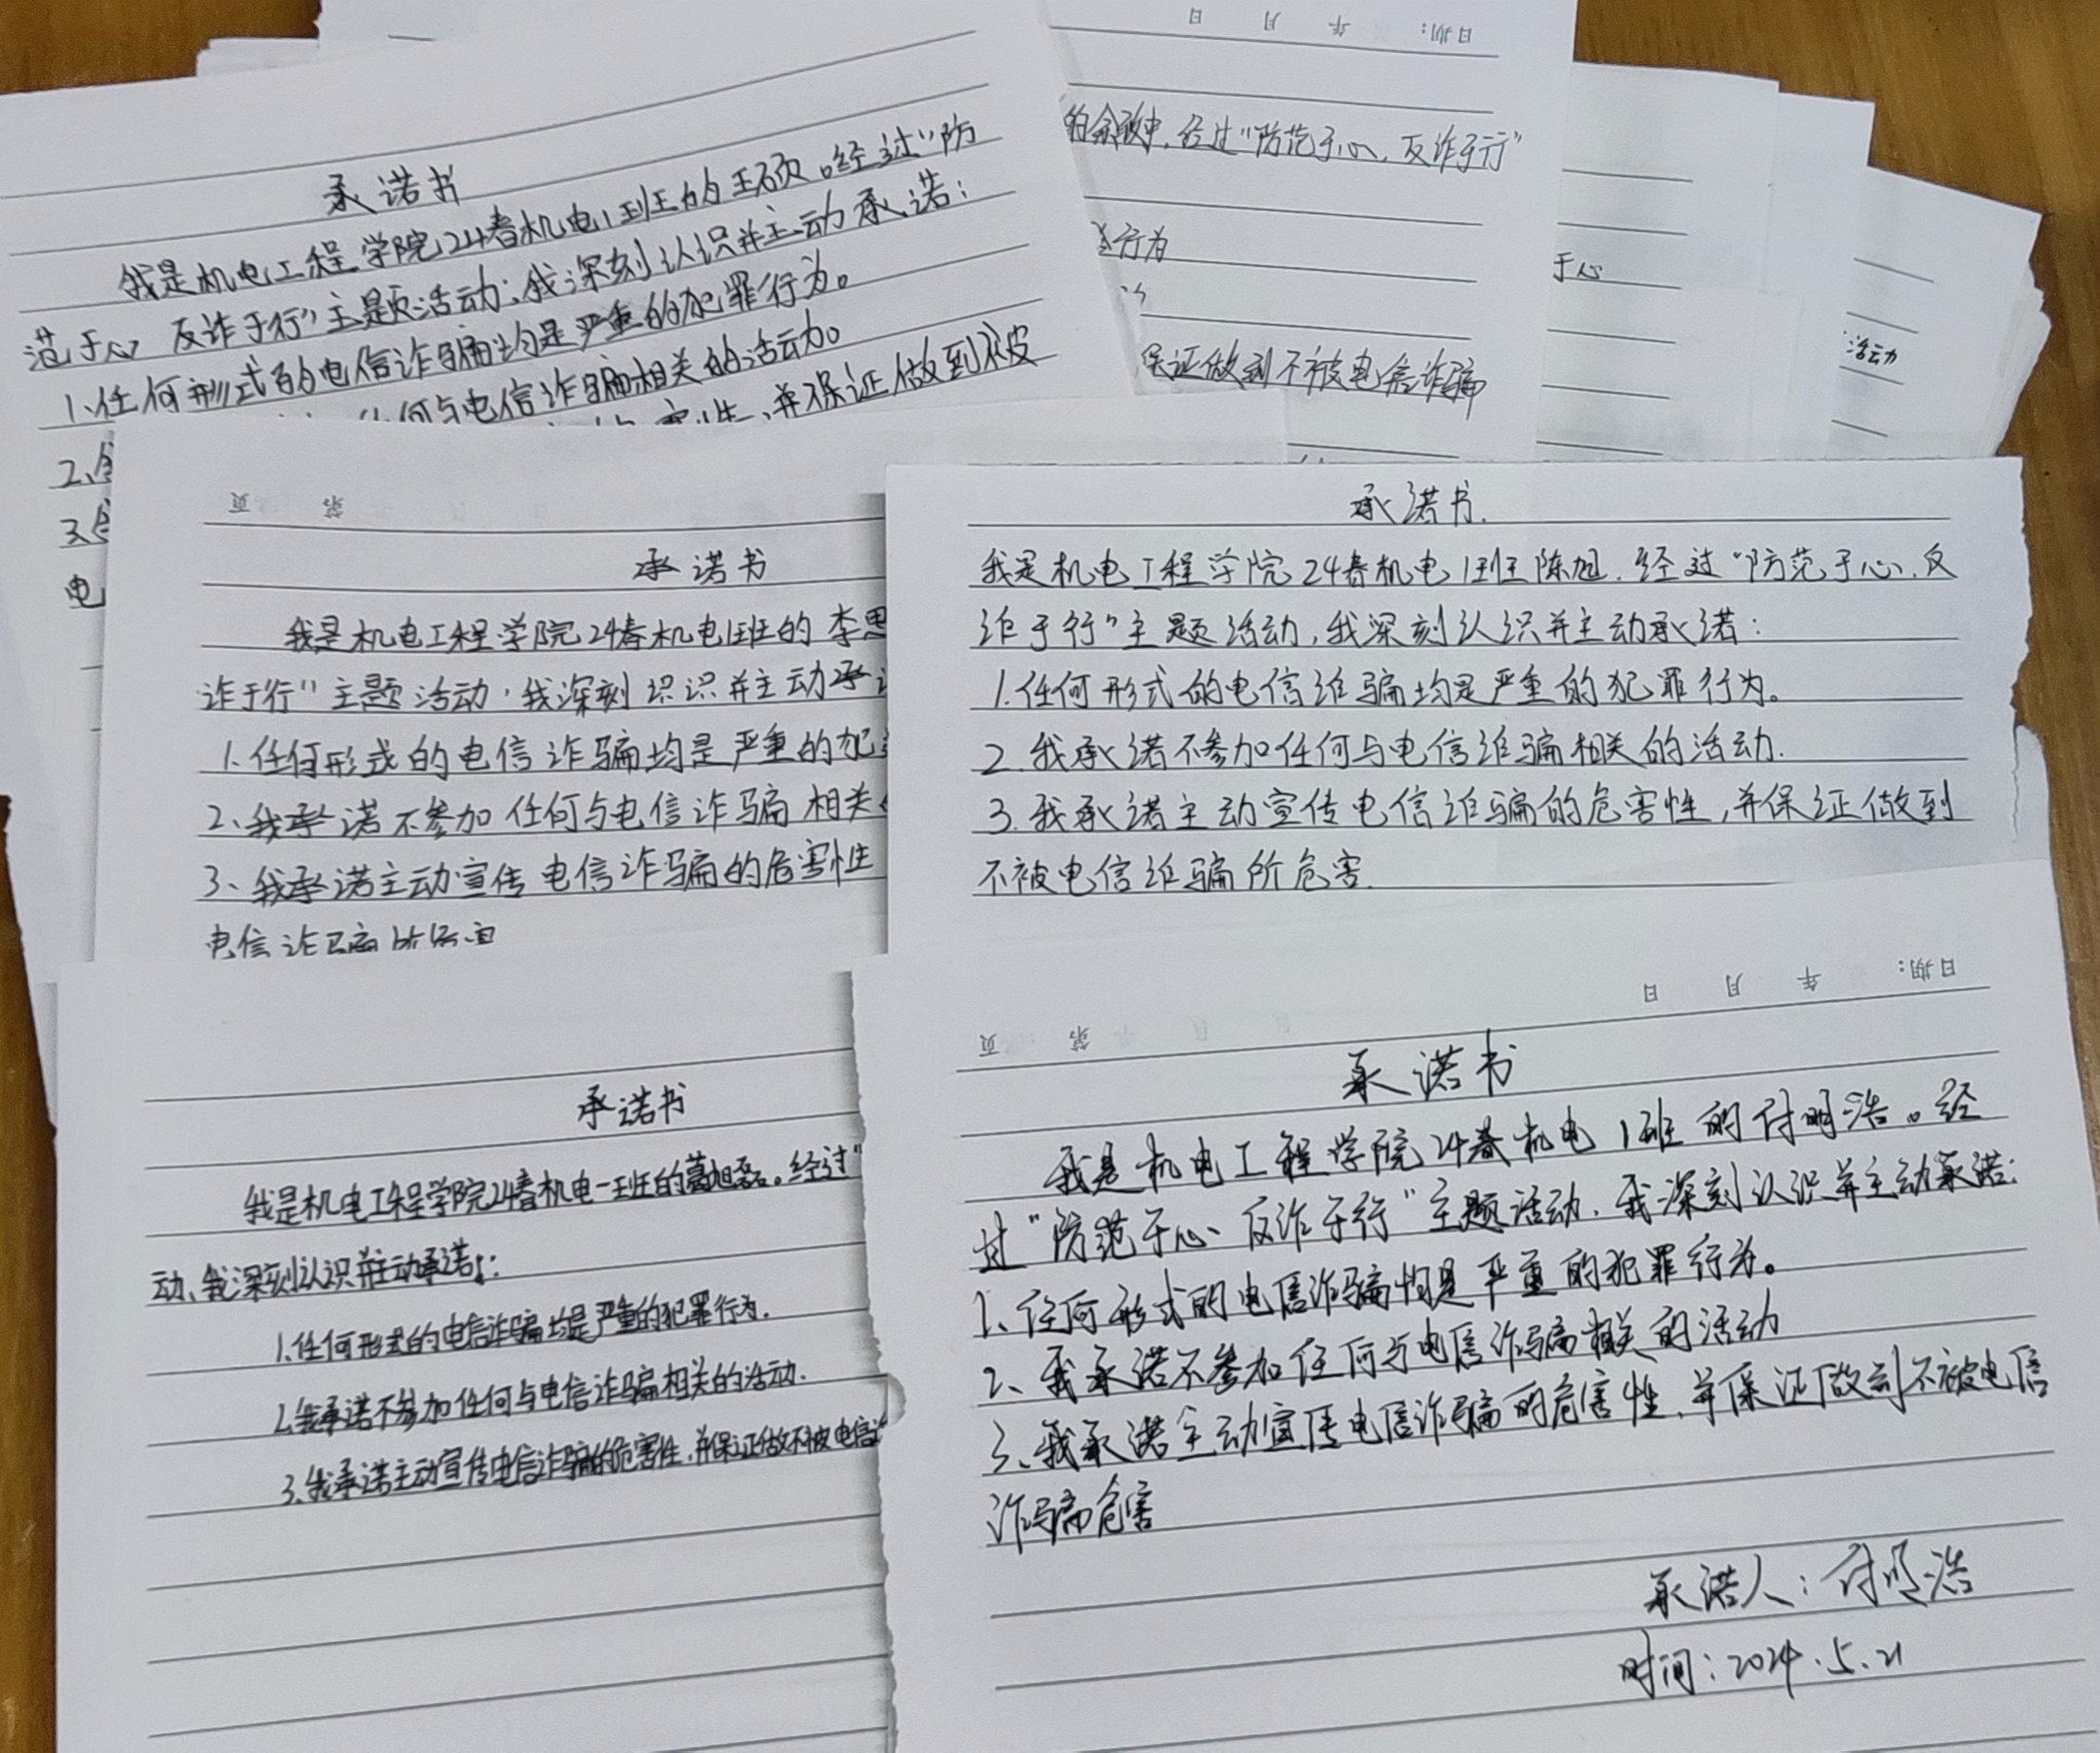 承诺书
我是机电工程学院24春机电1班的王硕。经过“防
范于心 反诈于行”主题活动，我深刻认识并主动承诺：
1、任何形式的电信诈骗均是严重的犯罪行为。
何与电信诈骗相关的活动。
2、
并保证做到不被
3、
电
日期： 年 月 日
经过“防范于心，反诈于行”
行为
保证做到不被电信诈骗
于心
活动
第 页
承诺书
我是机电工程学院24春机电1班的李思
诈于行”主题活动，我深刻识识并主动承
1.任何形式的电信诈骗均是严重的犯
2、我承诺不参加任何与电信诈骗相关
3、我承诺主动宣传电信诈骗的危害性
电信诈骗所危害
承诺书.
我是机电工程学院24春机电1班陈旭.经过“防范于心.反
诈于行”主题活动,我深刻认识并主动承诺:
1.任何形式的电信诈骗均是严重的犯罪行为。
2.我承诺不参加任何与电信诈骗相关的活动.
3.我承诺主动宣传电信诈骗的危害性,并保证做到
不被电信诈骗所危害.
承诺书
我是机电工程学院24春机电一班的葛旭磊。经过“
动、我深刻认识并主动承诺:
1.任何形式的电信诈骗均是严重的犯罪行为.
2.我承诺不参加任何与电信诈骗相关的活动.
3.我承诺主动宣传电信诈骗的危害性,并保证做不被电信
日期： 年 月 日
第 页
承诺书
我是机电工程学院24春机电1班的付明浩。经
过“防范于心 反诈于行”主题活动.我深刻认识并主动承诺:
1、任何形式的电信诈骗均是严重的犯罪行为。
2、我承诺不参加任何与电信诈骗相关的活动
3、我承诺主动宣传电信诈骗的危害性,并保证做到不被电信
诈骗危害
承诺人:付明浩
时间:2024.5.21